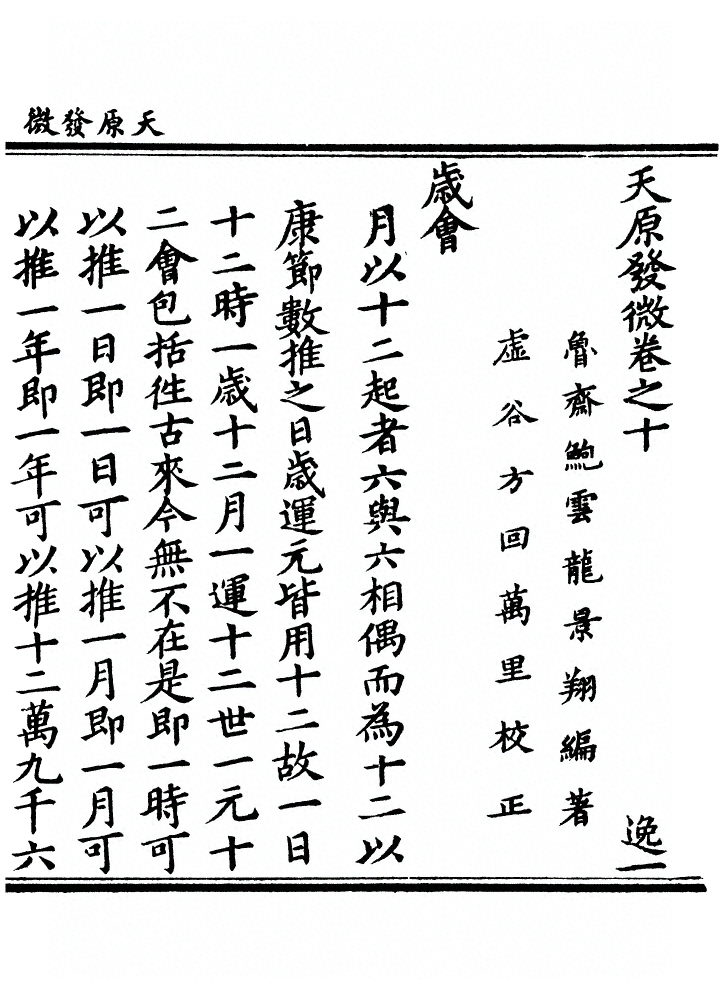 天原發微
天原發微卷之十 逸一
魯齋鮑雲龍景翔編著
虛谷方回萬里校正
歲會
月以十二起者六與六相偶而為十二以
康節數推之日歲運元皆用十二故一日
十二時一歲十二月一運十二世一元十
二會包括徃古來今無不在是即一時可
以推一日即一日可以推一月即一月可
以推一年即一年可以推十二萬九千六